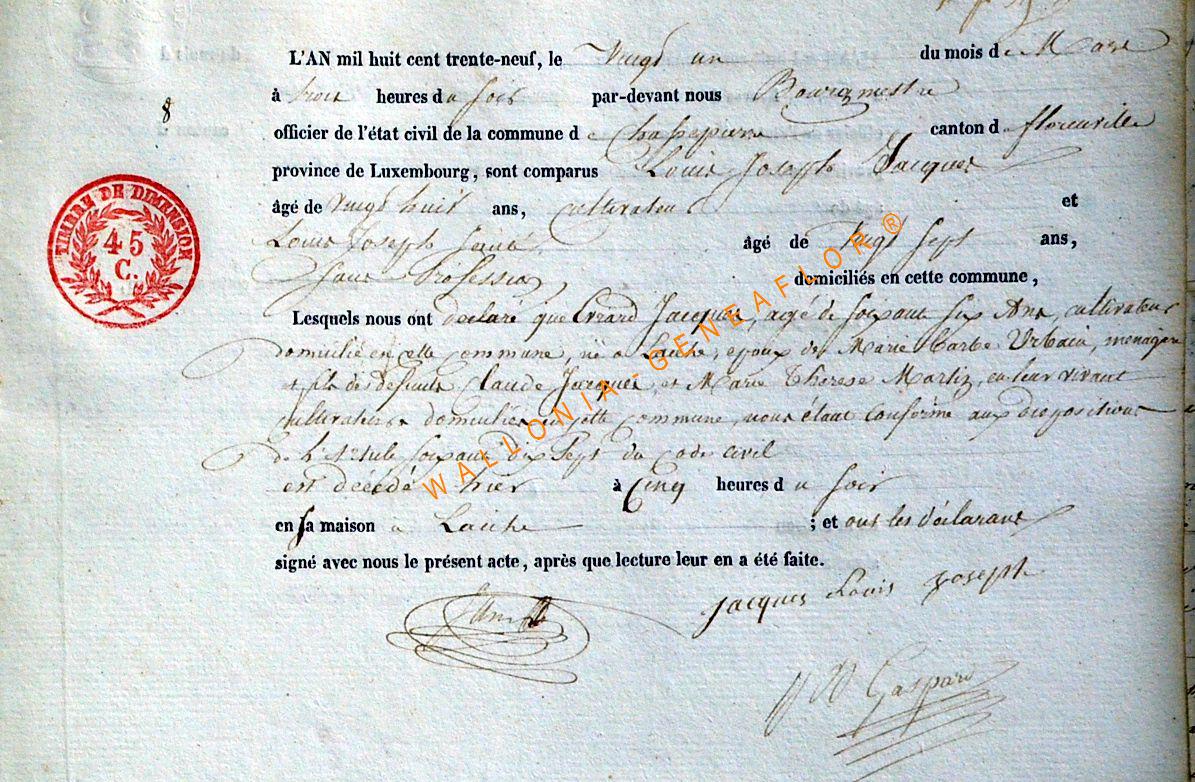 8
L'AN mil huit cent trente-neuf, le Vingt un du mois de Mars
à trois heures du soir par-devant nous Bourgmestre
officier de l'état civil de la commune de Chassepierre canton de florenville
province de Luxembourg, sont comparus Louis Joseph Jacques
âgé de vingt huit ans, cultivateur et
Louis Joseph âgé de Vingt Sept ans,
Sans Profession, domiciliés en cette commune,
Lesquels nous ont déclaré que Erard Jacques, agé de soixante six Ans, cultivateur
domicilié en cette commune, né à Laiche, epoux de Marie Barbe Urbain, menagère
et fils des defunts Claude Jacques et Marie Therese Martin, en leur vivant
cultivateurs domiciliés en cette commune, nous étant conformé aux dispositions
de l'article soixante dix Sept du code civil
est décédé hier à Cinq heures du soir
en sa maison a Laiche ; et ont les déclarants
signé avec nous le présent acte, après que lecture leur en a été faite.
Jacques Louis Joseph
Gaspard
TIMBRE DE DIMENSION
45
C.
WALLONIA-GENEAFLOR ®